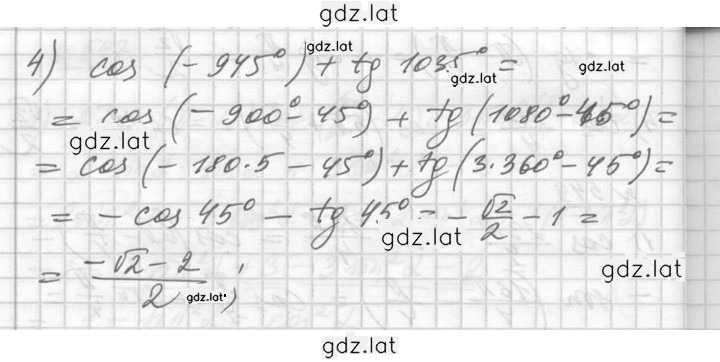 gdz.lat
4) cos (- 945°) + tg 1035° =
gdz.lat gdz.lat gdz.lat
= cos (- 900° - 45°) + tg (1080° - 45°) =
gdz.lat
= cos (- 180·5 - 45°) + tg (3·360° - 45°) =
= - cos 45° - tg 45° = - √2/2 - 1 =
gdz.lat
= (-√2 - 2)/2 ;
gdz.lat gdz.lat
gdz.lat